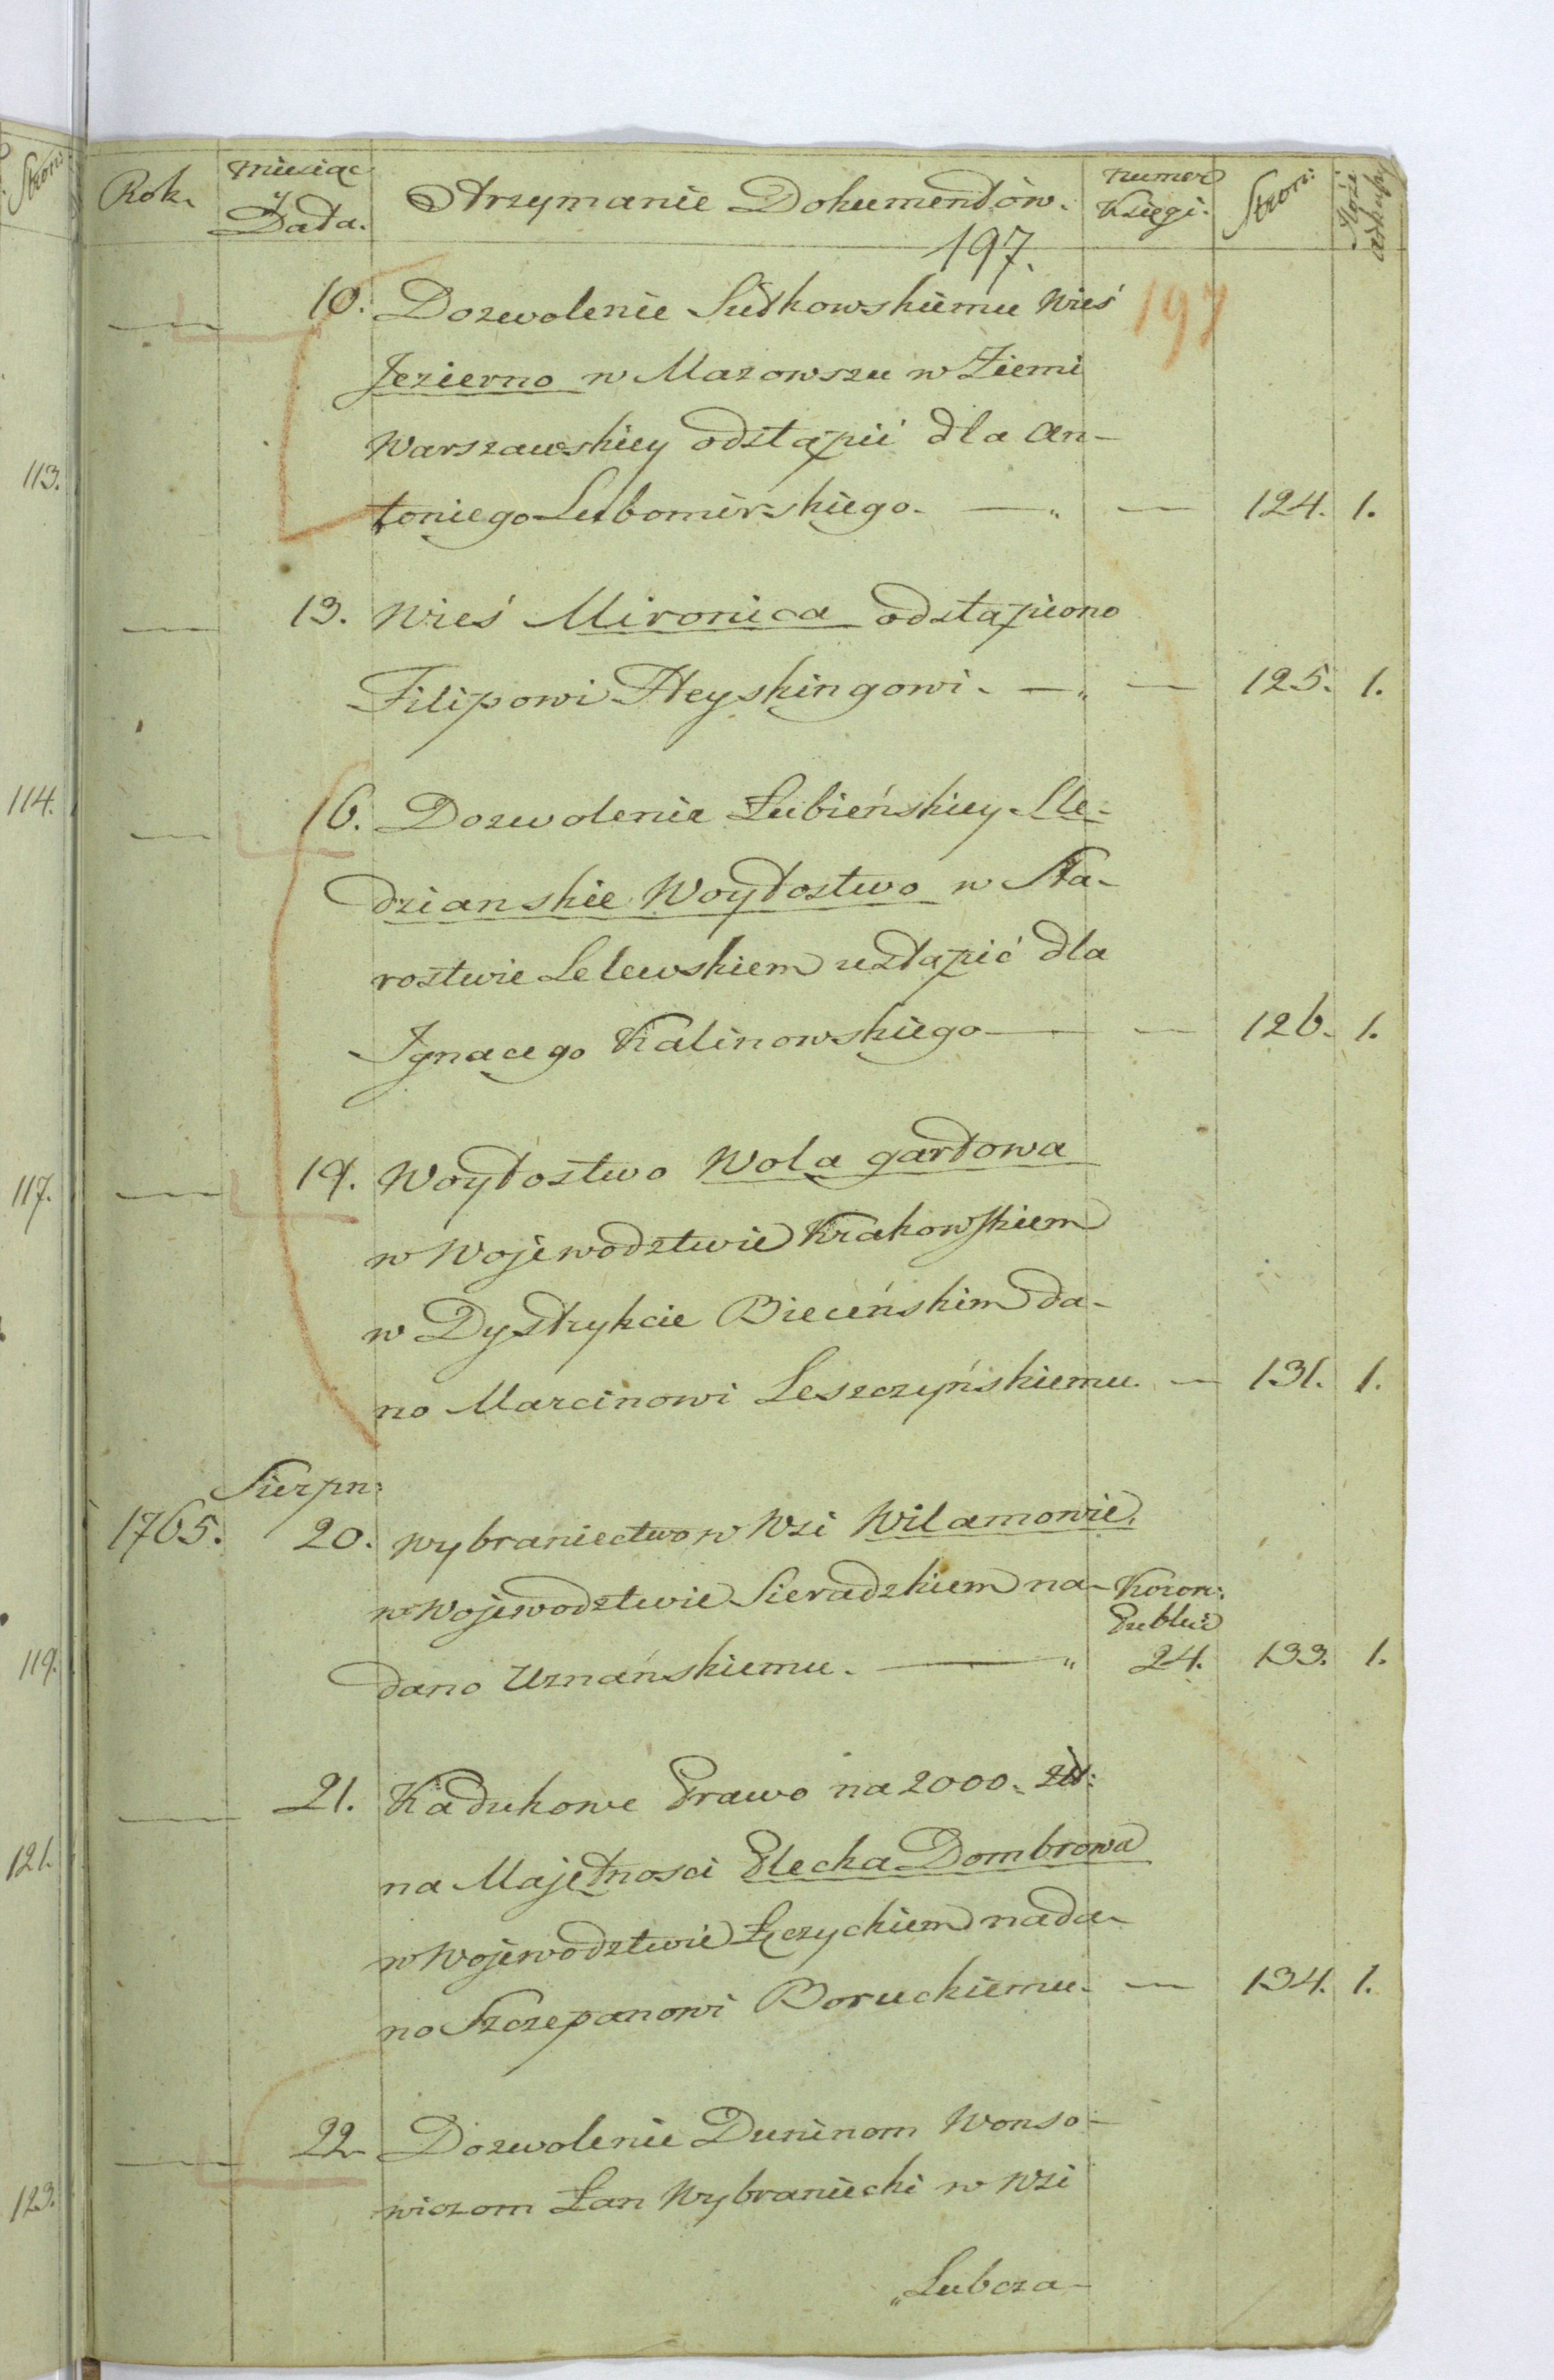 Rok. Miesiąc y Data. Otrzymanie Dokumentów. Numer Księgi. Stron:
197.
10. Dozwolenie Sułkowskiemu Wieś 197
Jezierno w Mazowszu w Ziemi
Warszawskiey odstąpić dla An-
toniego Lubomirskiego. — 124. 1.
13. Wieś Mironica odstąpiono
Filipowi Heyskingowi. — 125. 1.
16. Dozwolenie Łubieńskiey Sle-
dzianskie Woytostwo w Sta-
rostwie Lelewskiem ustąpić dla
Ignacego Kalinowskiego — 126. 1.
19. Woytostwo Wola gardowa
w Wojewodztwie Krakowskiem
w Dystrykcie Bieceńskim da-
no Marcinowi Leszczyńskiemu. — 131. 1.
Sierpn:
1765. 20. Wybraniectwo w Wsi Wilamowie.
w Wojewodztwie Sieradzkiem na- Koron:
Public
dano Uznańskiemu. — 24. 133. 1.
21. Kadukowe Prawo na 2000. Zł:
na Majętnosci Plecka Dombrowa
w Wojewodztwie Łęczyckiem nada-
no Szczepanowi Boruckiemu. — 134. 1.
22. Dozwolenie Duninom Wonso-
wiczom Łan Wybraniecki w Wsi
„Lubcza-
113.
114.
117.
119.
121.
123.